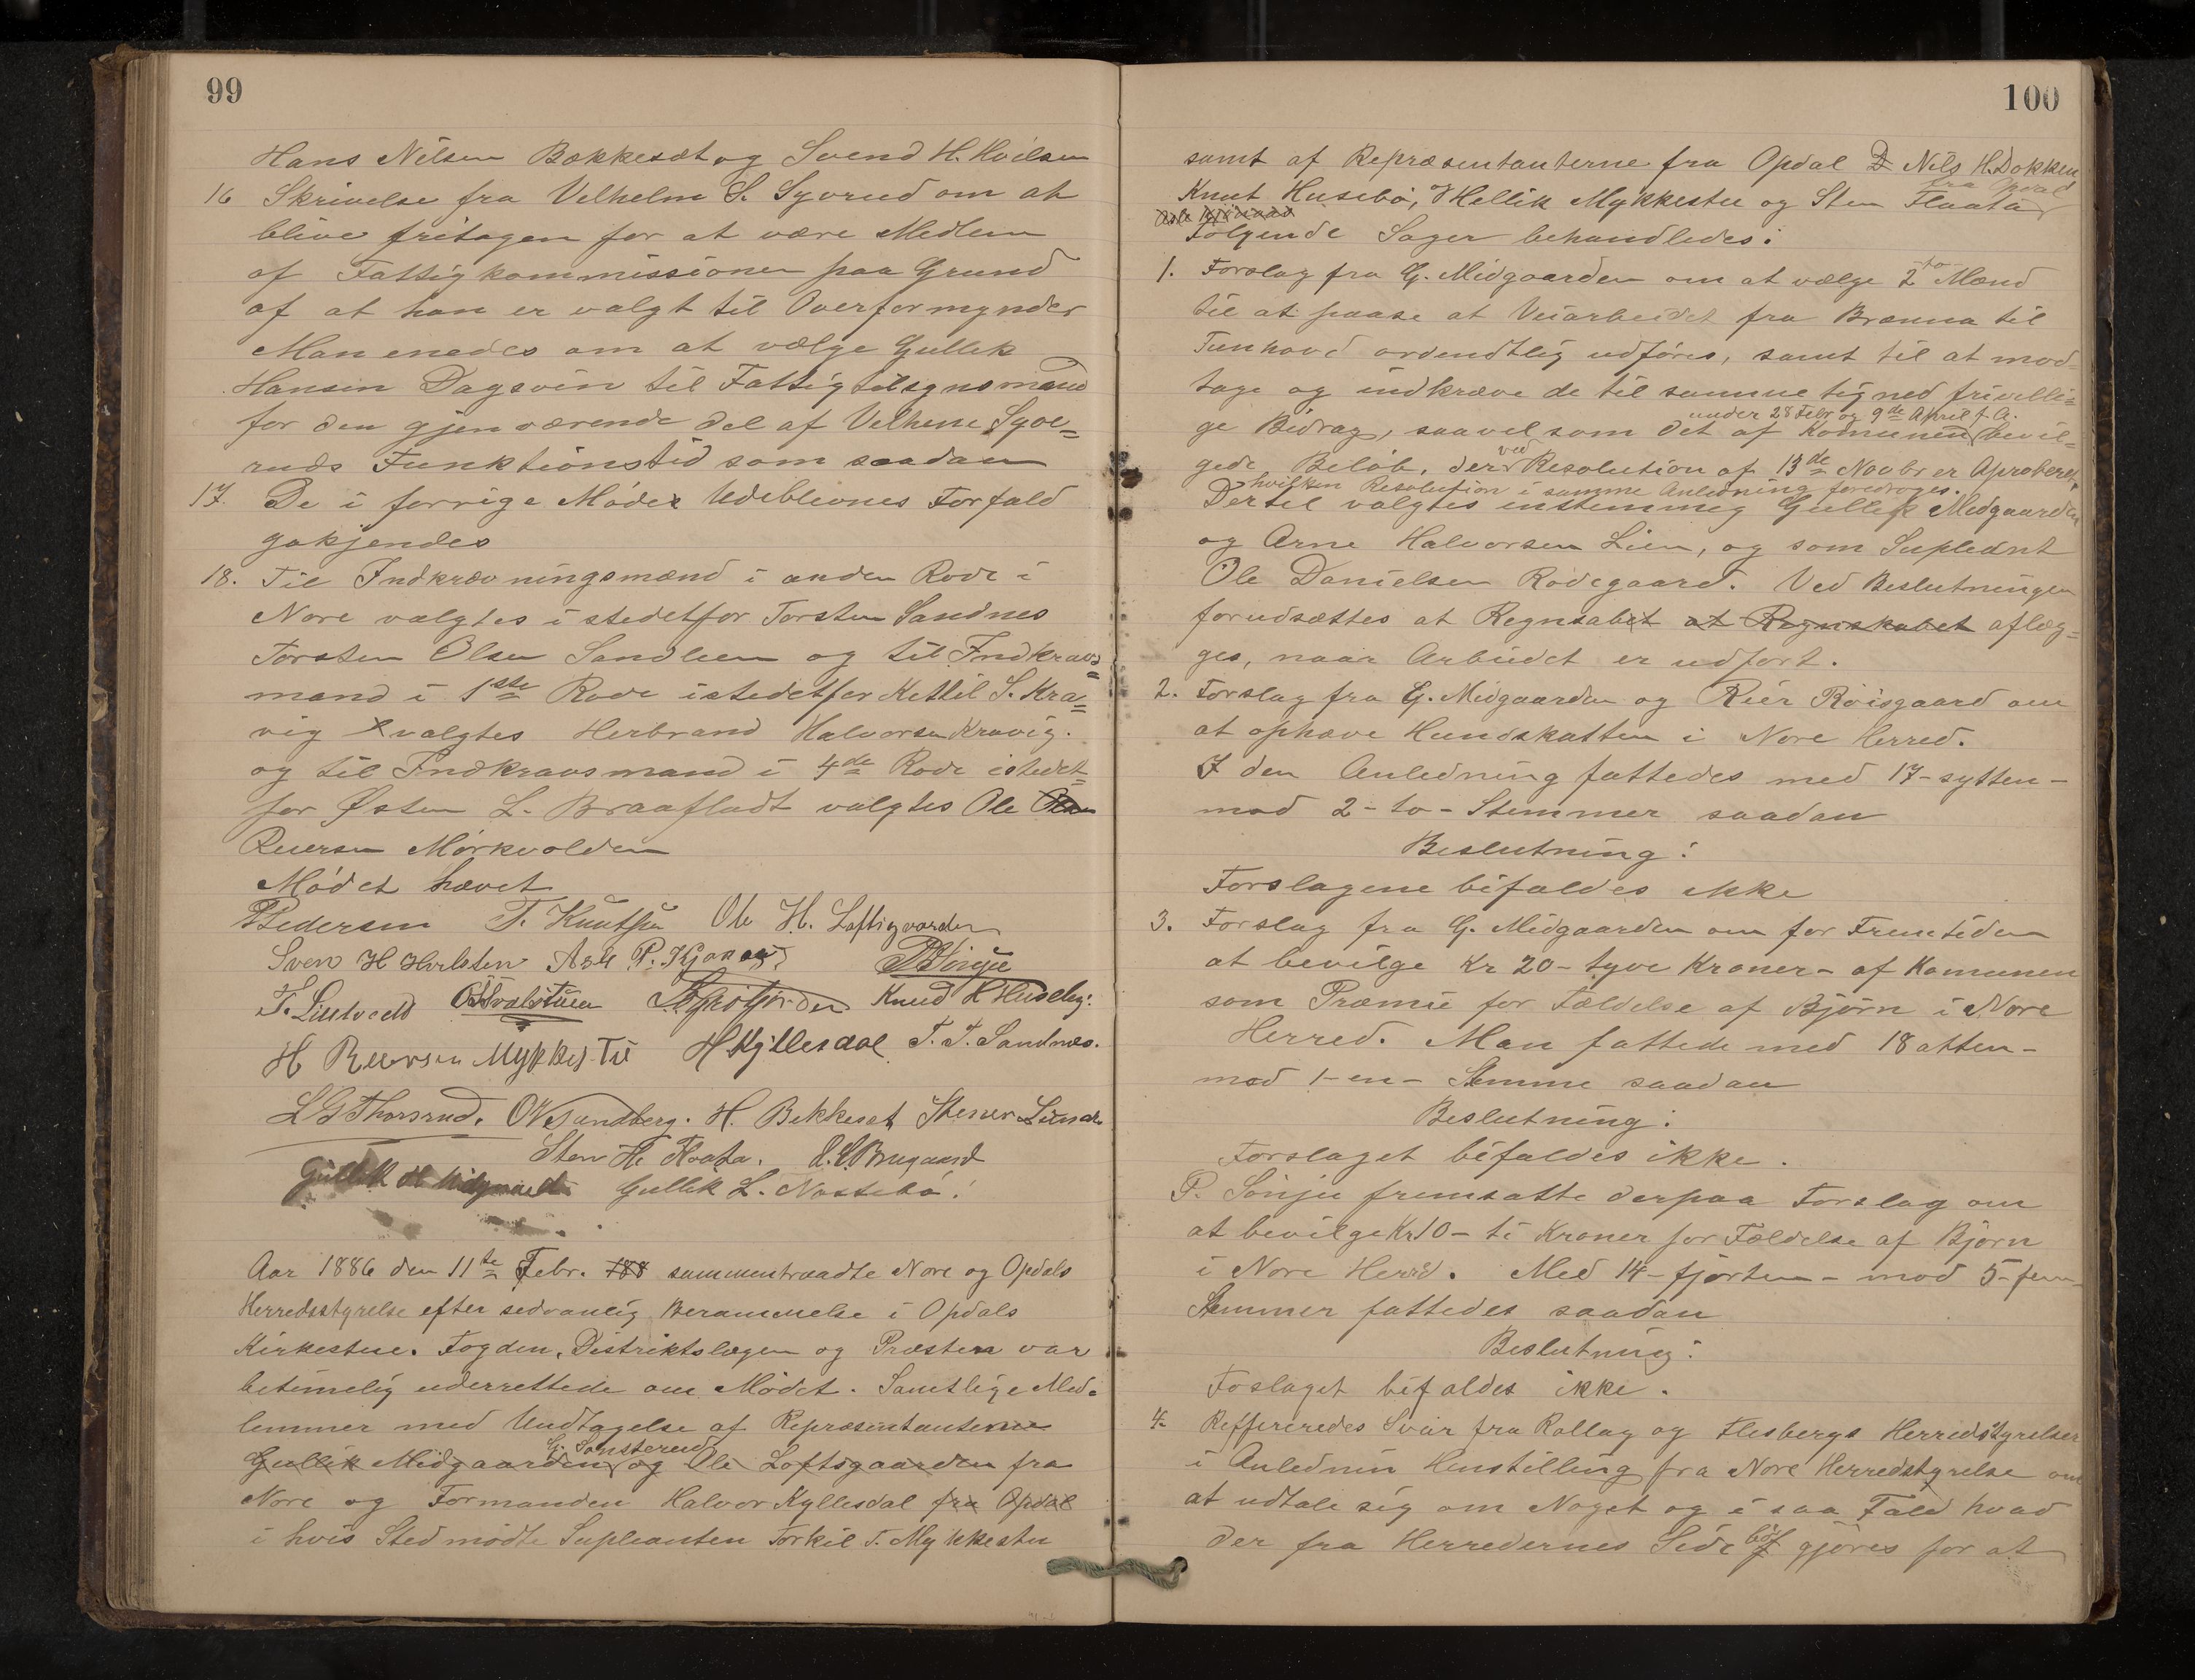 99
Hans Nilsen Bækkesæt og Svend H. Hvilsen
16 Skrivelse fra Velhelm S. Syvrud om at
blive fritagen for at være Medlem
af Fattigkommissionen paa Grund
af at han er valgt til Overformynder
Man enedes om at vælge Gullek
Hansen Dagsvin til Fattigtilsynsmand
for den gjenværende del af Velhene Syve=
ruds Funktionstid som saadan
17. De i forrige Møde Udeblevnes Forfald
gokjendes
18. Til Indkrævningsmænd i anden Rode i
Nore valgtes i stedetfor Torsten Sandnes
Torsten Olsen Sandleen og til Indkravs=
mand i 1ste Rode istedetfor Kettil S. Kra=
vig valgtes Herbrand Halvorsen Kravig.
og til Indkravsmand i 4de Rode istedet=
for Østen L. Braafladt valgtes Ole Olsen
Reiersen Mørkvolden
Mødet hævet
PPedersen T. Knutsen Ole H. Loftsgaarden
Sven H Hvilsten Asle P. Kjønaas PSönju
T. Liutvedt Knud H Huseby:
H Reiersen Mykkestu H.Kyllesdal T. T. Sandnæs.
L G Thorsrud. O N Sandberg. H. Bekkeset Stener Lunde
Sten H. Flaata.
Gullik H Midgaard Gullik L. Nøstebø.
Aar 1886 den 11te Febr. 188 sammentraadte Nore og Opdals
Herredsstyrelse efter sedvanlig Berammelse i Opdals
Kirkestue. Fogden, Distriktslægen og Præsten var
betimelig underrettede om Mødet. Samtlige Med=
lemmer med Undtagelse af Repræsentanterne
G. Sønsterud
Gullik Midgaarden og Ole Loftsgaarden fra
Nore og Formanden Halvor Kyllesdal fra Opdal
i hvis Sted mødte Supleanten Torkil T. Mykkestu
100
samt af Repræsentanterne fra Opdal D Nils H. Dokken
fra Opdal
Knut Husebø, Hellik Mykkestu og Sten Flaata
Asle Kjønaas
Følgende Sager behandledes:
1. Forslag fra G. Midgaarden om at vælge 2 -to- Mænd
til at paase at Veiarbeidet fra Brænna til
Tunhovd ordendtlig udføres, samt til at mod=
tage og indkræve de til samme tegned frivelli=
under 28 Febr og 9de April f. A.
ge Bidrag, saavelsom det af Komunen bevil=
ved
gede Beløb, der Resolution af 13de Novbr er Aproberet,
hvilken Resolution i samme Anledning foredroges.
Dertil valgtes enstemmig Gullik Midgaarden
og Arne Halvorsen Lien, og som Supleant
Ole Danielsen Rødegaard. Ved Beslutningen
forudsættes at Regnsabet at Regnskabet aflæg=
ges, naar Arbeidet er udført.
2. Forslag fra G. Midgaarden og Reier Roisgaard om
at ophæve Hundskatten i Nore Herred.
I den Anledning fattedes med 17-sytten-
mod 2-to-Stemmer saadan
Beslutning:
Forslagene bifaldes ikke
3. Forslag fra G. Midgaarden om for Fremtiden
at bevilge Kr 20-tyve Kroner- af Komunen
som Præmie for Fældelse af Bjørn i Nore
Herred. Man fattede med 18 atten-
mod 1-en- Stemme saadan
Beslutning:
Forslaget bifaldes ikke.
P. Sønju fremsatte derpaa Forslag om
at bevilge Kr 10-ti Kroner for Fældelse af Bjørn
i Nore Herred. Med 14-fjorten-mod 5-fem
Stemmer fattedes saadan
Beslutning:
Foslaget bifaldes ikke.
4. Reffereredes Svar fra Rollag og Flesbergs Herredstyrelser
i Anlednin Henstilling fra Nore Herredstyrelse om
at udtale sig om Noget og i saa Fald hvad
der fra Herredernes Side bør gjøres for at